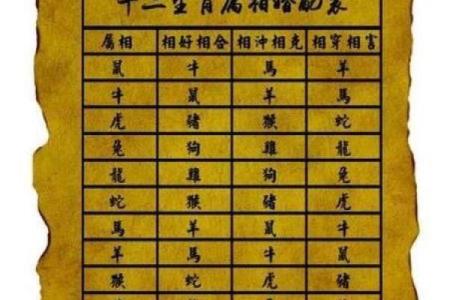 十二生肖屬相婚配表
屬相 相好相合 相沖相克 相穿相害
鼠 牛 馬 羊
牛 鼠 羊 馬
虎 豬 猴 蛇
兔 狗 雞 龍
龍 雞 狗 兔
蛇 猴 豬 虎
馬 羊 鼠 牛
羊 馬 牛 鼠
猴 蛇 虎 豬